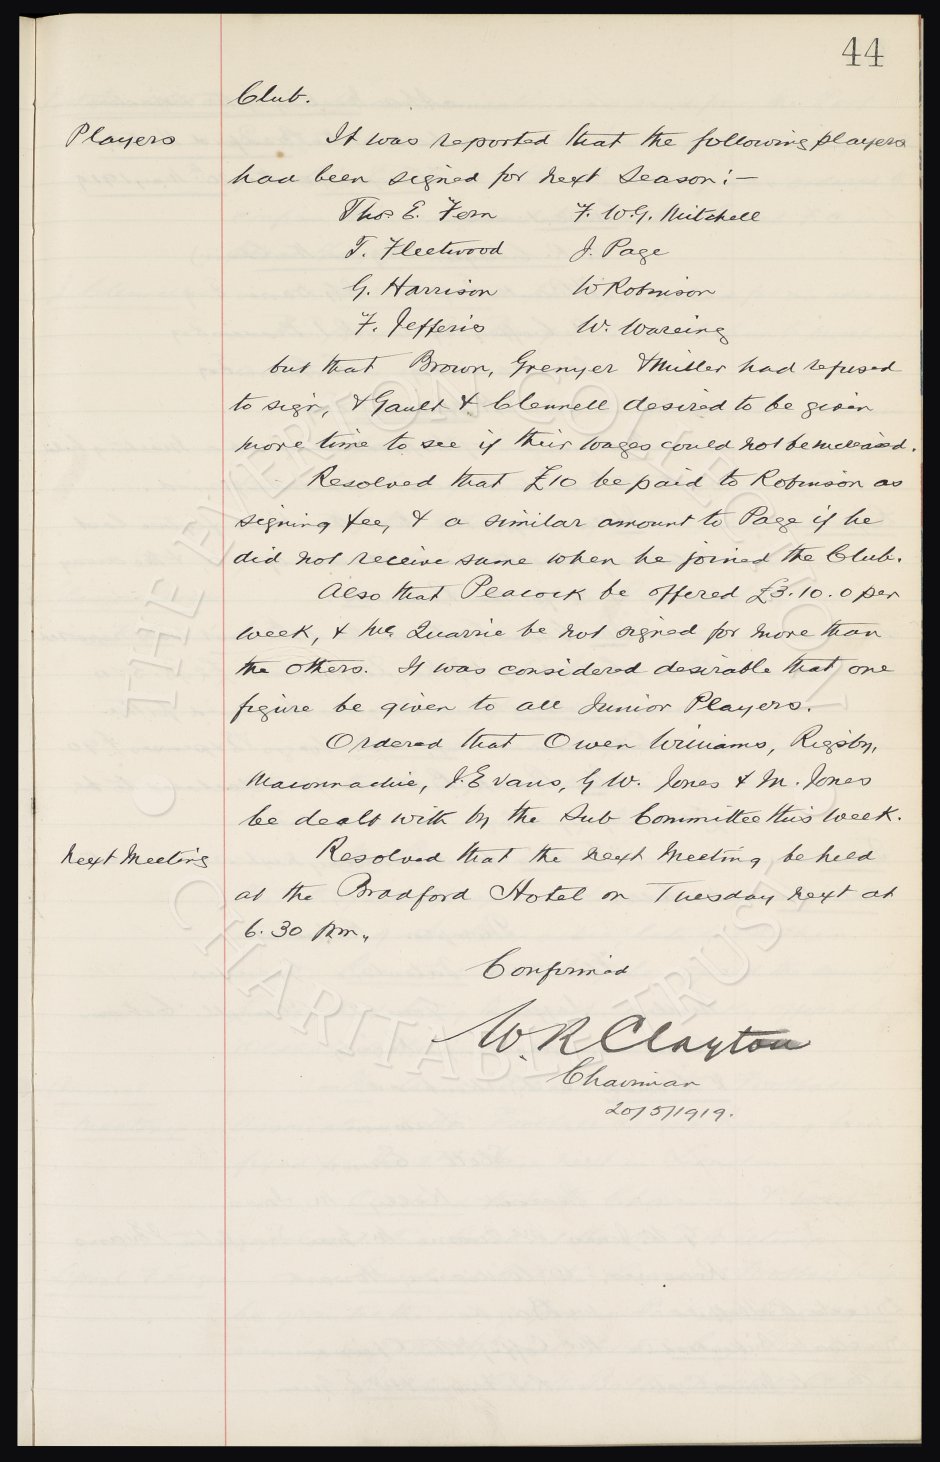 44
Club.
Players
It was reported that the following players
had been signed for next season:—
Thos E. Fern F. W.G. Mitchell
T. Fleetwood J. Page
G. Harrison W Robinson
F. Jefferis W. Wareing
but that Brown, Grenyer & Miller had refused
to sign, & Gault & Clennell desired to be given
more time to see if their wages could not be increased.
Resolved that £10 be paid to Robinson as
signing fee, & a similar amount to Page if he
did not receive same when he joined the Club.
Also that Peacock be offered £3.10.0 per
week, & Mc Quarrie be not signed for more than
the others. It was considered desirable that one
figure be given to all Junior Players.
Ordered that Owen Williams, Rigsby,
Maconnachie, J. Evans, G W. Jones & M. Jones
be dealt with by the Sub Committee this week.
Next Meeting
Resolved that the next Meeting be held
at the Bradford Hotel on Tuesday next at
6.30 pm.
Confirmed
W. R Clayton
Chairman
20/5/1919.
THE EVERTON COLLECTION
CHARITABLE TRUST